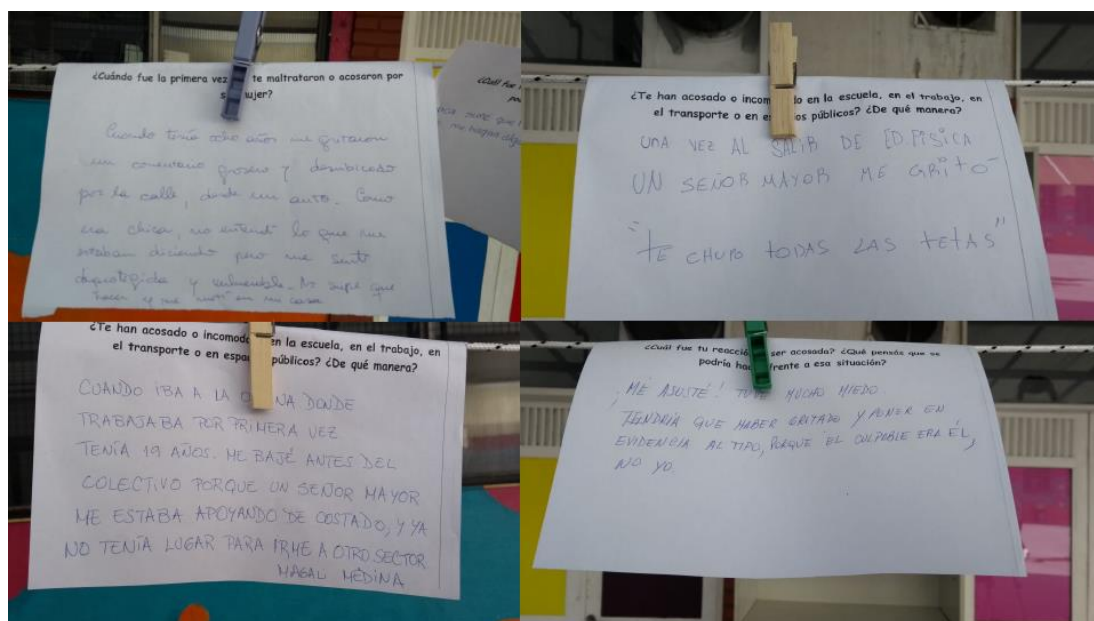 ¿Cuándo fue la primera vez te maltrataron o acosaron por
s mujer?
Cuando tenía ocho años me gritaron
un comentario grosero y desubicado
por la calle, desde un auto. Como
era chica, no entendí lo que me
estaban diciendo pero me sentí
desprotegida y vulnerable. No supe que
hacer y me metí en mi casa
¿Cuál fue
po
¿Te han acosado o incom do en la escuela, en el trabajo, en
el transporte o en es os públicos? ¿De qué manera?
UNA VEZ AL SALIR DE ED. FISICA
UN SEÑOR MAYOR ME GRITO
"TE CHUPO TODAS LAS TETAS"
¿Te han acosado o incomod en la escuela, en el trabajo, en
el transporte o en espa públicos? ¿De qué manera?
CUANDO IBA A LA O NA DONDE
TRABAJABA POR PRIMERA VEZ
TENÍA 19 AÑOS. ME BAJÉ ANTES DEL
COLECTIVO PORQUE UN SEÑOR MAYOR
ME ESTABA APOYANDO DE COSTADO, Y YA
NO TENÍA LUGAR PARA IRME A OTRO SECTOR
MAGAL MEDINA
¿Cuál fue tu reacció ser acosada? ¿Qué pensás que se
podría hac frente a esa situación?
¡ME ASUSTÉ! TUVE MUCHO MIEDO.
TENDRÍA QUE HABER GRITADO Y PONER EN
EVIDENCIA AL TIPO, PORQUE EL CULPABLE ERA ÉL,
NO YO.